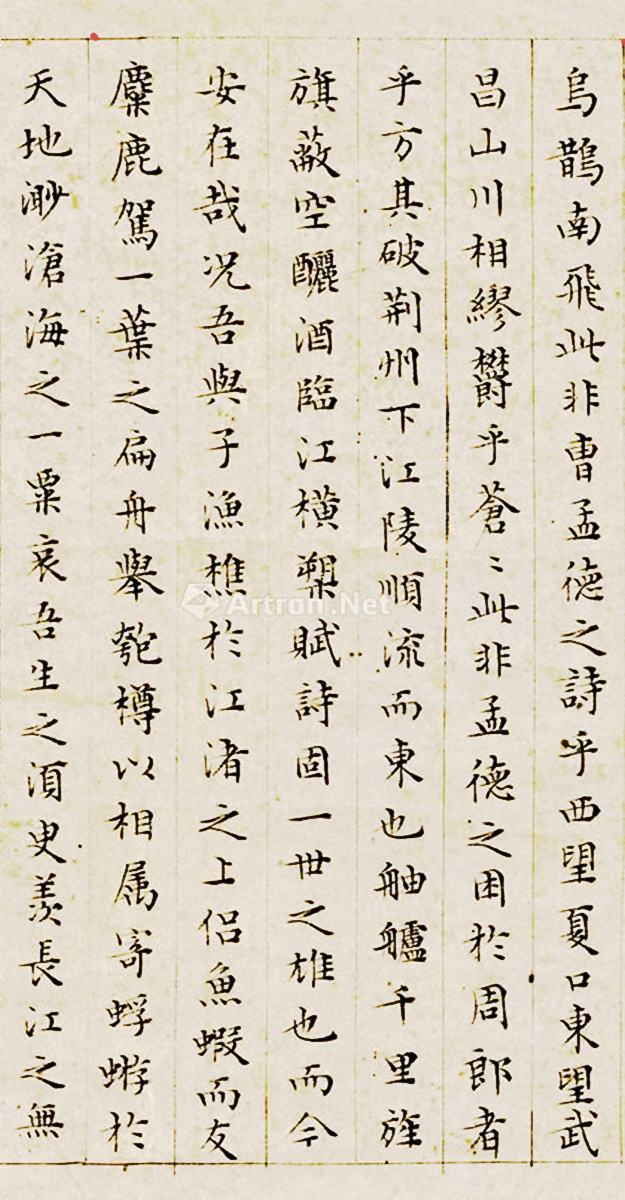 烏鵲南飛此非曹孟德之詩乎西望夏口東望武
昌山川相繆欝乎蒼〻此非孟德之困於周郎者
乎方其破荆州下江陵順流而東也舳艫千里旌
旗蔽空釃酒臨江橫槊賦詩固一世之雄也而今
安在哉况吾與子漁樵於江渚之上侣魚蝦而友
麋鹿駕一葉之扁舟舉匏樽以相属寄蜉蝣於
天地渺滄海之一粟哀吾生之湏臾羨長江之無
Artron.Net